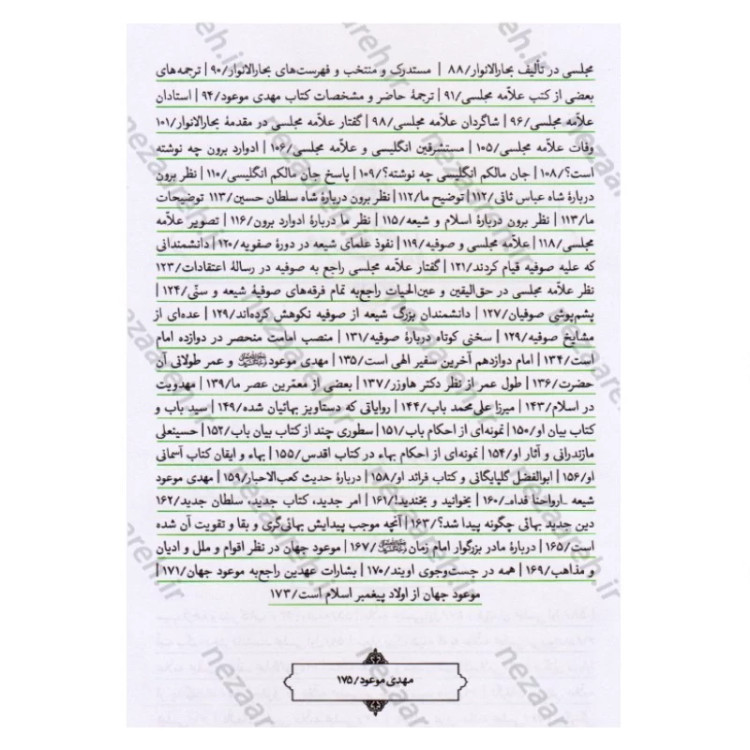 مجلسی در تألیف بحارالانوار/۸۸ | مستدرک و منتخب و فهرست‌های بحارالانوار/۹۰ | ترجمه‌های
بعضی از کتب علاّمه مجلسی/۹۱ | ترجمهٔ حاضر و مشخصات کتاب مهدی موعود/۹۴ | استادان
علاّمه مجلسی/۹۶ | شاگردان علاّمه مجلسی/۹۸ | گفتار علاّمه مجلسی در مقدمهٔ بحارالانوار/۱۰۱
وفات علامه مجلسی/۱۰۵ | مستشرقین انگلیسی و علامه مجلسی/۱۰۶ | ادوارد برون چه نوشته
است؟/۱۰۸ | جان مالکم انگلیسی چه نوشته؟/۱۰۹ | پاسخ جان مالکم انگلیسی/۱۱۰ | نظر برون
دربارهٔ شاه عباس ثانی/۱۱۲ | توضیح ما/۱۱۲ | نظر برون دربارهٔ شاه سلطان حسین/۱۱۳ توضیحات
ما/۱۱۳ | نظر برون دربارهٔ اسلام و شیعه/۱۱۵ | نظر ما دربارهٔ ادوارد برون/۱۱۶ | تصویر علاّمه
مجلسی/۱۱۸ | علاّمه مجلسی و صوفیه/۱۱۹ | نفوذ علمای شیعه در دورهٔ صفویه/۱۲۰ | دانشمندانی
که علیه صوفیه قیام کردند/۱۲۱ | گفتار علاّمه مجلسی راجع به صوفیه در رسالهٔ اعتقادات/۱۲۳
نظر علاّمه مجلسی در حق‌الیقین و عین‌الحیات راجع‌به تمام فرقه‌های صوفیهٔ شیعه و سنّی/۱۲۴ |
پشم‌پوشی صوفیان/۱۲۷ | دانشمندان بزرگ شیعه از صوفیه نکوهش کرده‌اند/۱۲۹ | عده‌ای از
مشایخ صوفیه/۱۲۹ | سخنی کوتاه دربارهٔ صوفیه/۱۳۱ | منصب امامت منحصر در دوازده امام
است/۱۳۴ | امام دوازدهم آخرین سفیر الهی است/۱۳۵ | مهدی موعود و عمر طولانی آن
حضرت/۱۳۶ | طول عمر از نظر دکتر هاوزر/۱۳۷ | بعضی از معمّرین عصر ما/۱۳۹ | مهدویت
در اسلام/۱۴۳ | میرزا علی‌محمد باب/۱۴۴ | روایاتی که دستاویز بهائیان شده/۱۴۹ | سید باب و
کتاب بیان او/۱۵۰ | نمونه‌ای از احکام باب/۱۵۱ | سطوری چند از کتاب بیان باب/۱۵۲ | حسینعلی
مازندرانی و آثار او/۱۵۴ | نمونه‌ای از احکام بهاء در کتاب اقدس/۱۵۵ | بهاء و ایقان کتاب آسمانی
او/۱۵۶ | ابوالفضل گلپایگانی و کتاب فرائد او/۱۵۸ | دربارهٔ حدیث کعب‌الاحبار/۱۵۹ | مهدی موعود
شیعه ـ‌ارواحنا فداه‌ـ/۱۶۰ | بخوانید و بخندید/۱۶۱ | امر جدید، کتاب جدید، سلطان جدید/۱۶۲
دین جدید بهائی چگونه پیدا شد؟/۱۶۳ | آنچه موجب پیدایش بهائی‌گری و بقا و تقویت آن شده
است/۱۶۵ | دربارهٔ مادر بزرگوار امام زمان/۱۶۷ | موعود جهان در نظر اقوام و ملل و ادیان
و مذاهب/۱۶۹ | همه در جست‌وجوی اویند/۱۷۰ | بشارات عهدین راجع‌به موعود جهان/۱۷۱ |
موعود جهان از اولاد پیغمبر اسلام است/۱۷۳
مهدی موعود/۱۷۵
nezaareh.ir